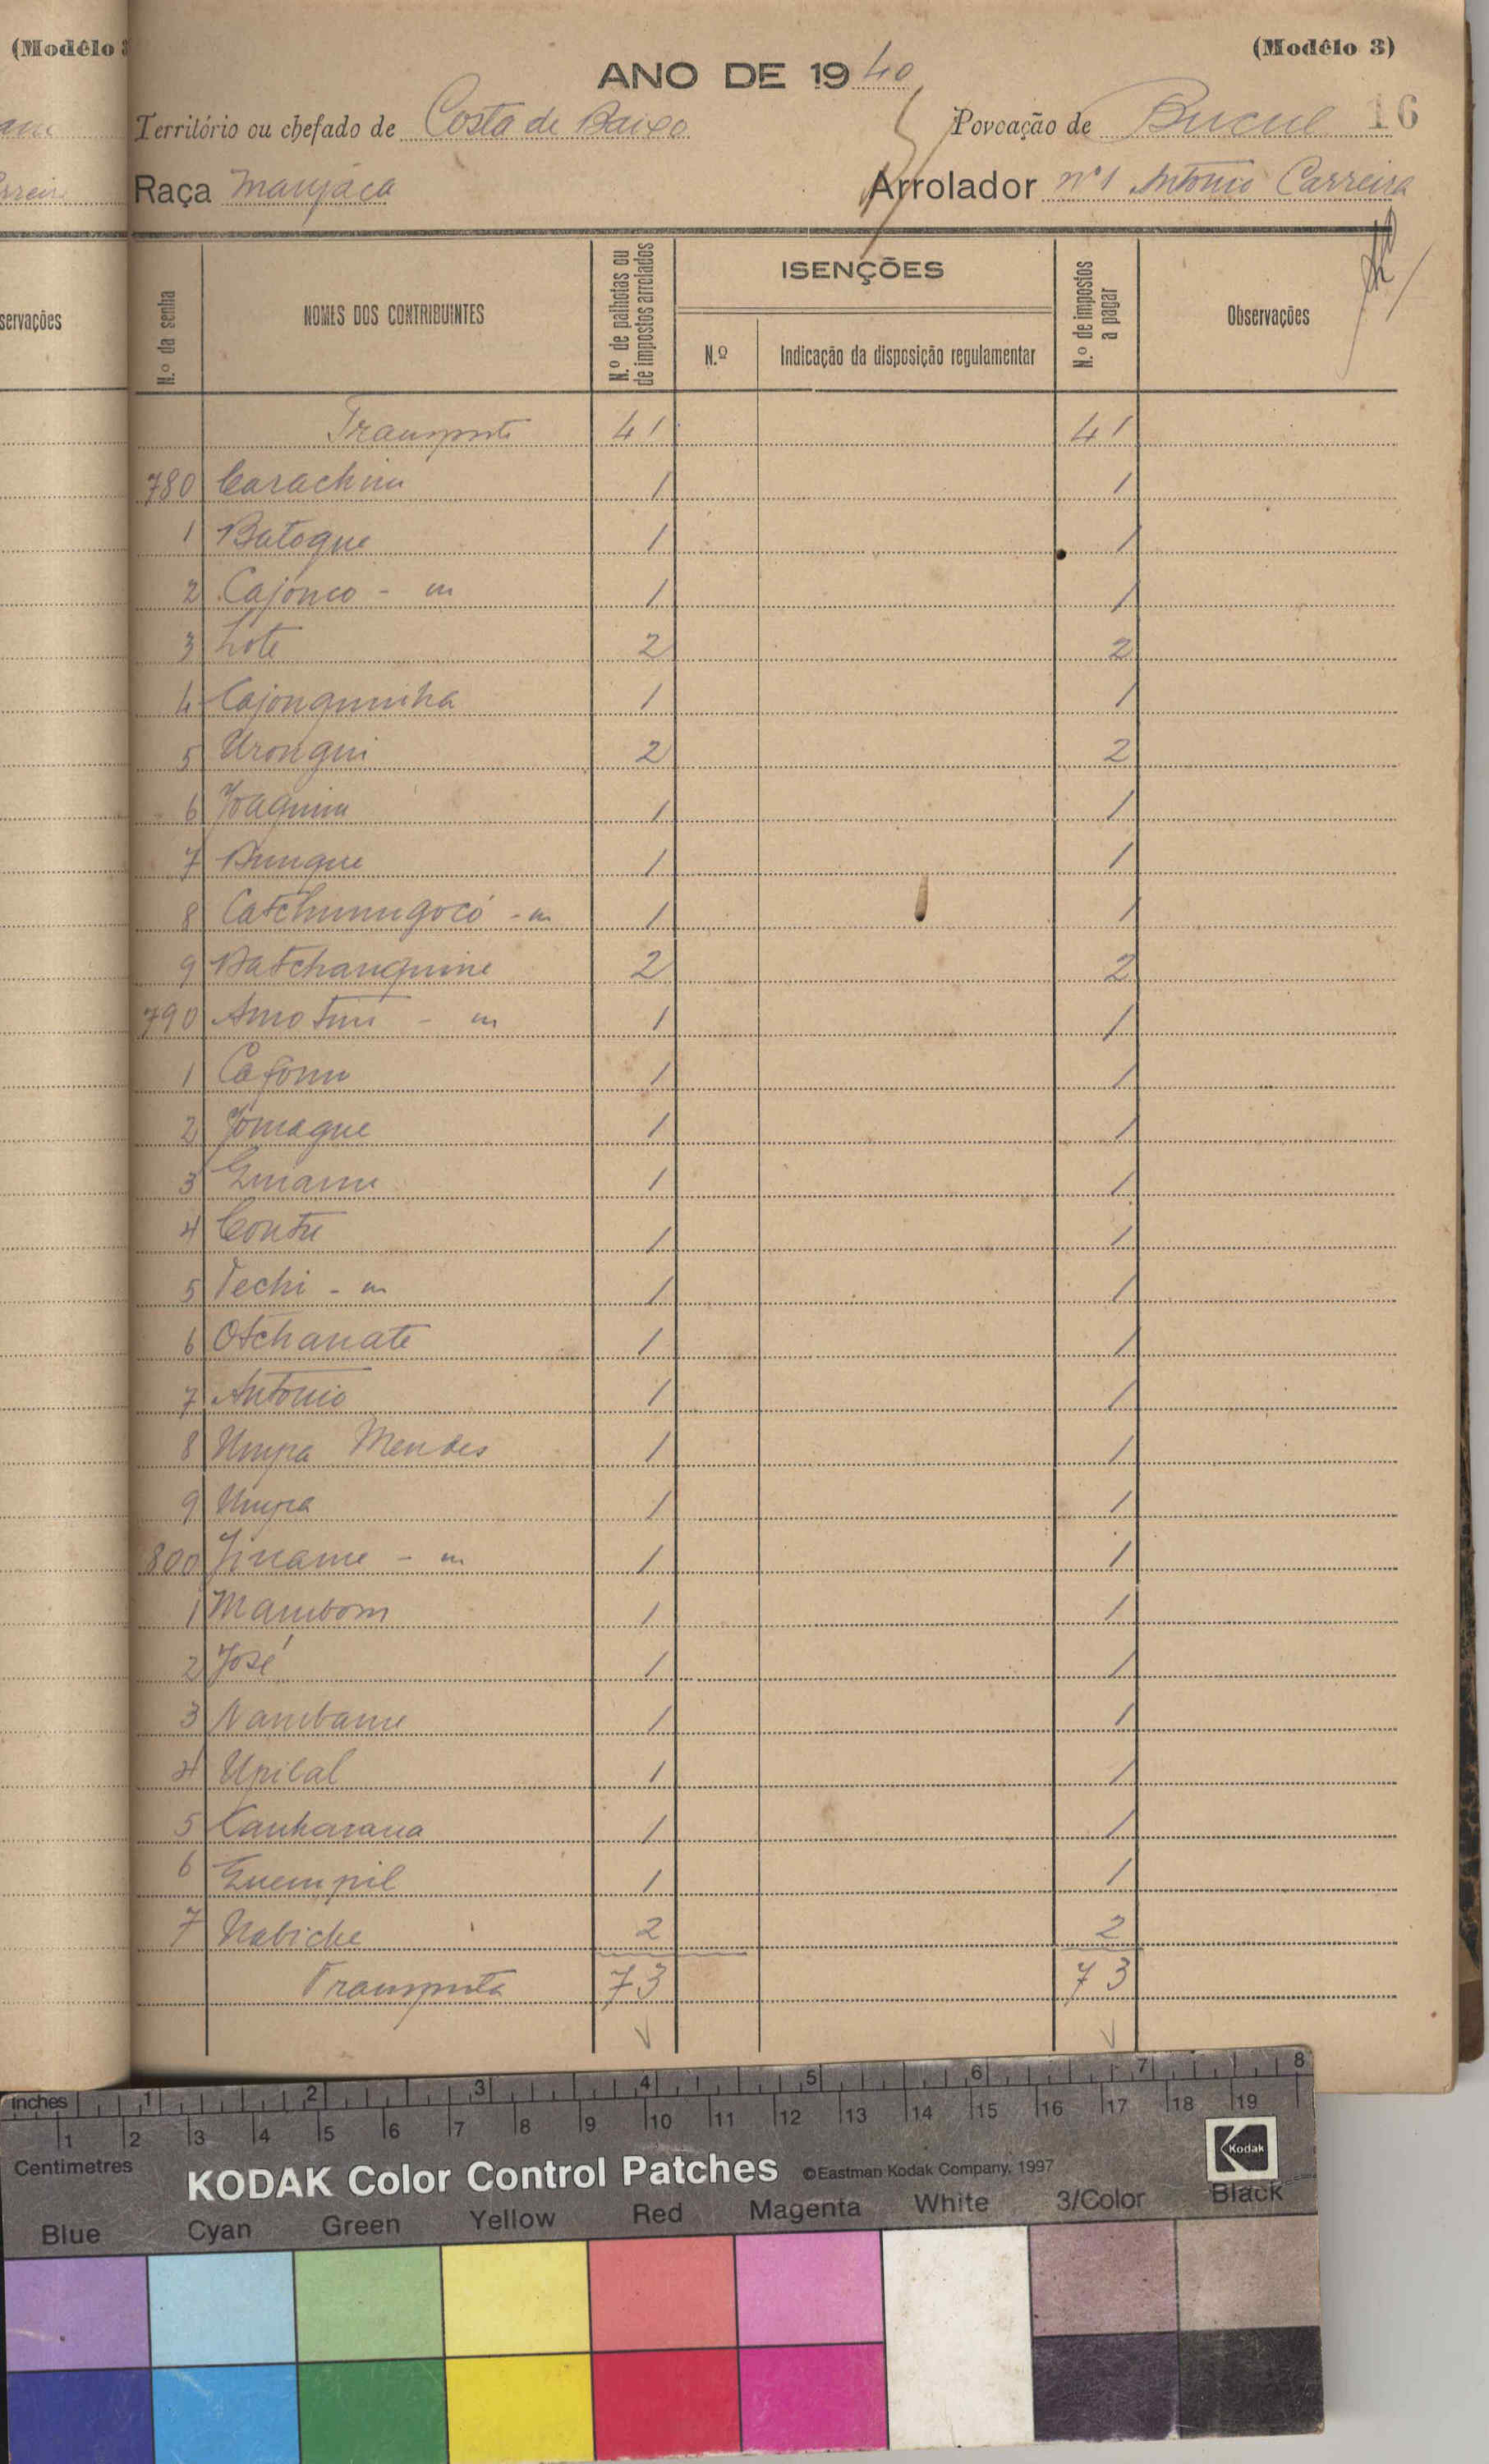 (Modêlo 3)
ANO DE 1940
16
Território ou chefado de Costa de Baixo Povoação de Bucul
Raça Manjaca Arrolador nº1 António Carreira
N.º da senha
NOMES DOS CONTRIBUINTES
N.º de palhotas ou de impostos arrolados
ISENÇÕES
N.º
Indicação da disposição regulamentar
N.º de impostos a pagar
Observações
Transporte 41 41
780 Carachim 1 1
1 Batoque 1 1
2 Cajonco - m 1 1
3 Lote 2 2
4 Cajongumha 1 1
5 Urongui 2 2
6 Joaquim 1 1
7 Bunque 1 1
8 Catchumugocó - m 1 1
9 Batchanguine 2 2
790 - m 1 1
1 Cafomu 1 1
2 Jomague 1 1
3 1 1
4 Contu 1 1
5 Techi - m 1 1
6 Otchanate 1 1
7 António 1 1
8 Umpa Mendes 1 1
9 Umpa 1 1
800 Jiname - m 1 1
1 Mambom 1 1
2 José 1 1
3 Nambame 1 1
4 Upilal 1 1
5 1 1
6 Guempil 1 1
7 Nabiche 2 2
Transporta 73 73
(Modêlo 3
servações
inches 1 2 3 4 5 6 7 8
1 2 3 4 5 6 7 8 9 10 11 12 13 14 15 16 17 18 19
Centimetres
KODAK Color Control Patches ©Eastman Kodak Company, 1997
Kodak
Blue Cyan Green Yellow Red Magenta White 3/Color Black